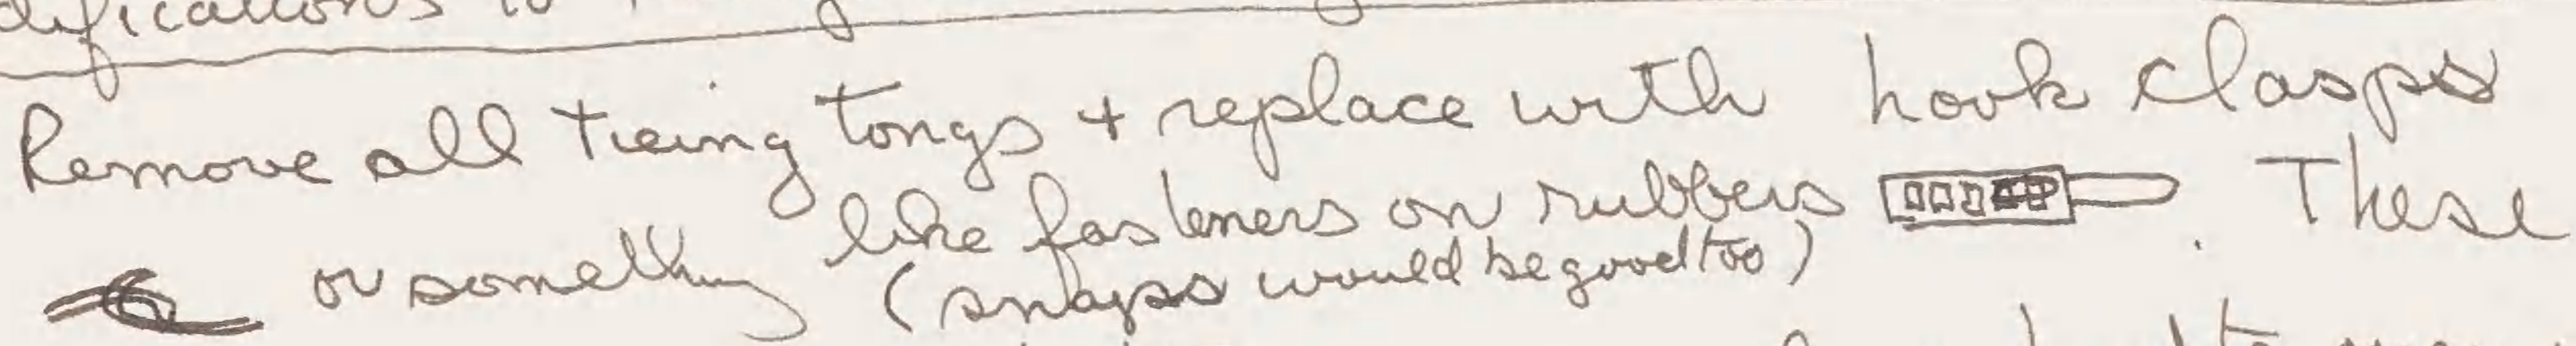 Remove all tieing tongs + replace with hook clasps
or something like fasteners on rubbers . These
(snaps would be good too)